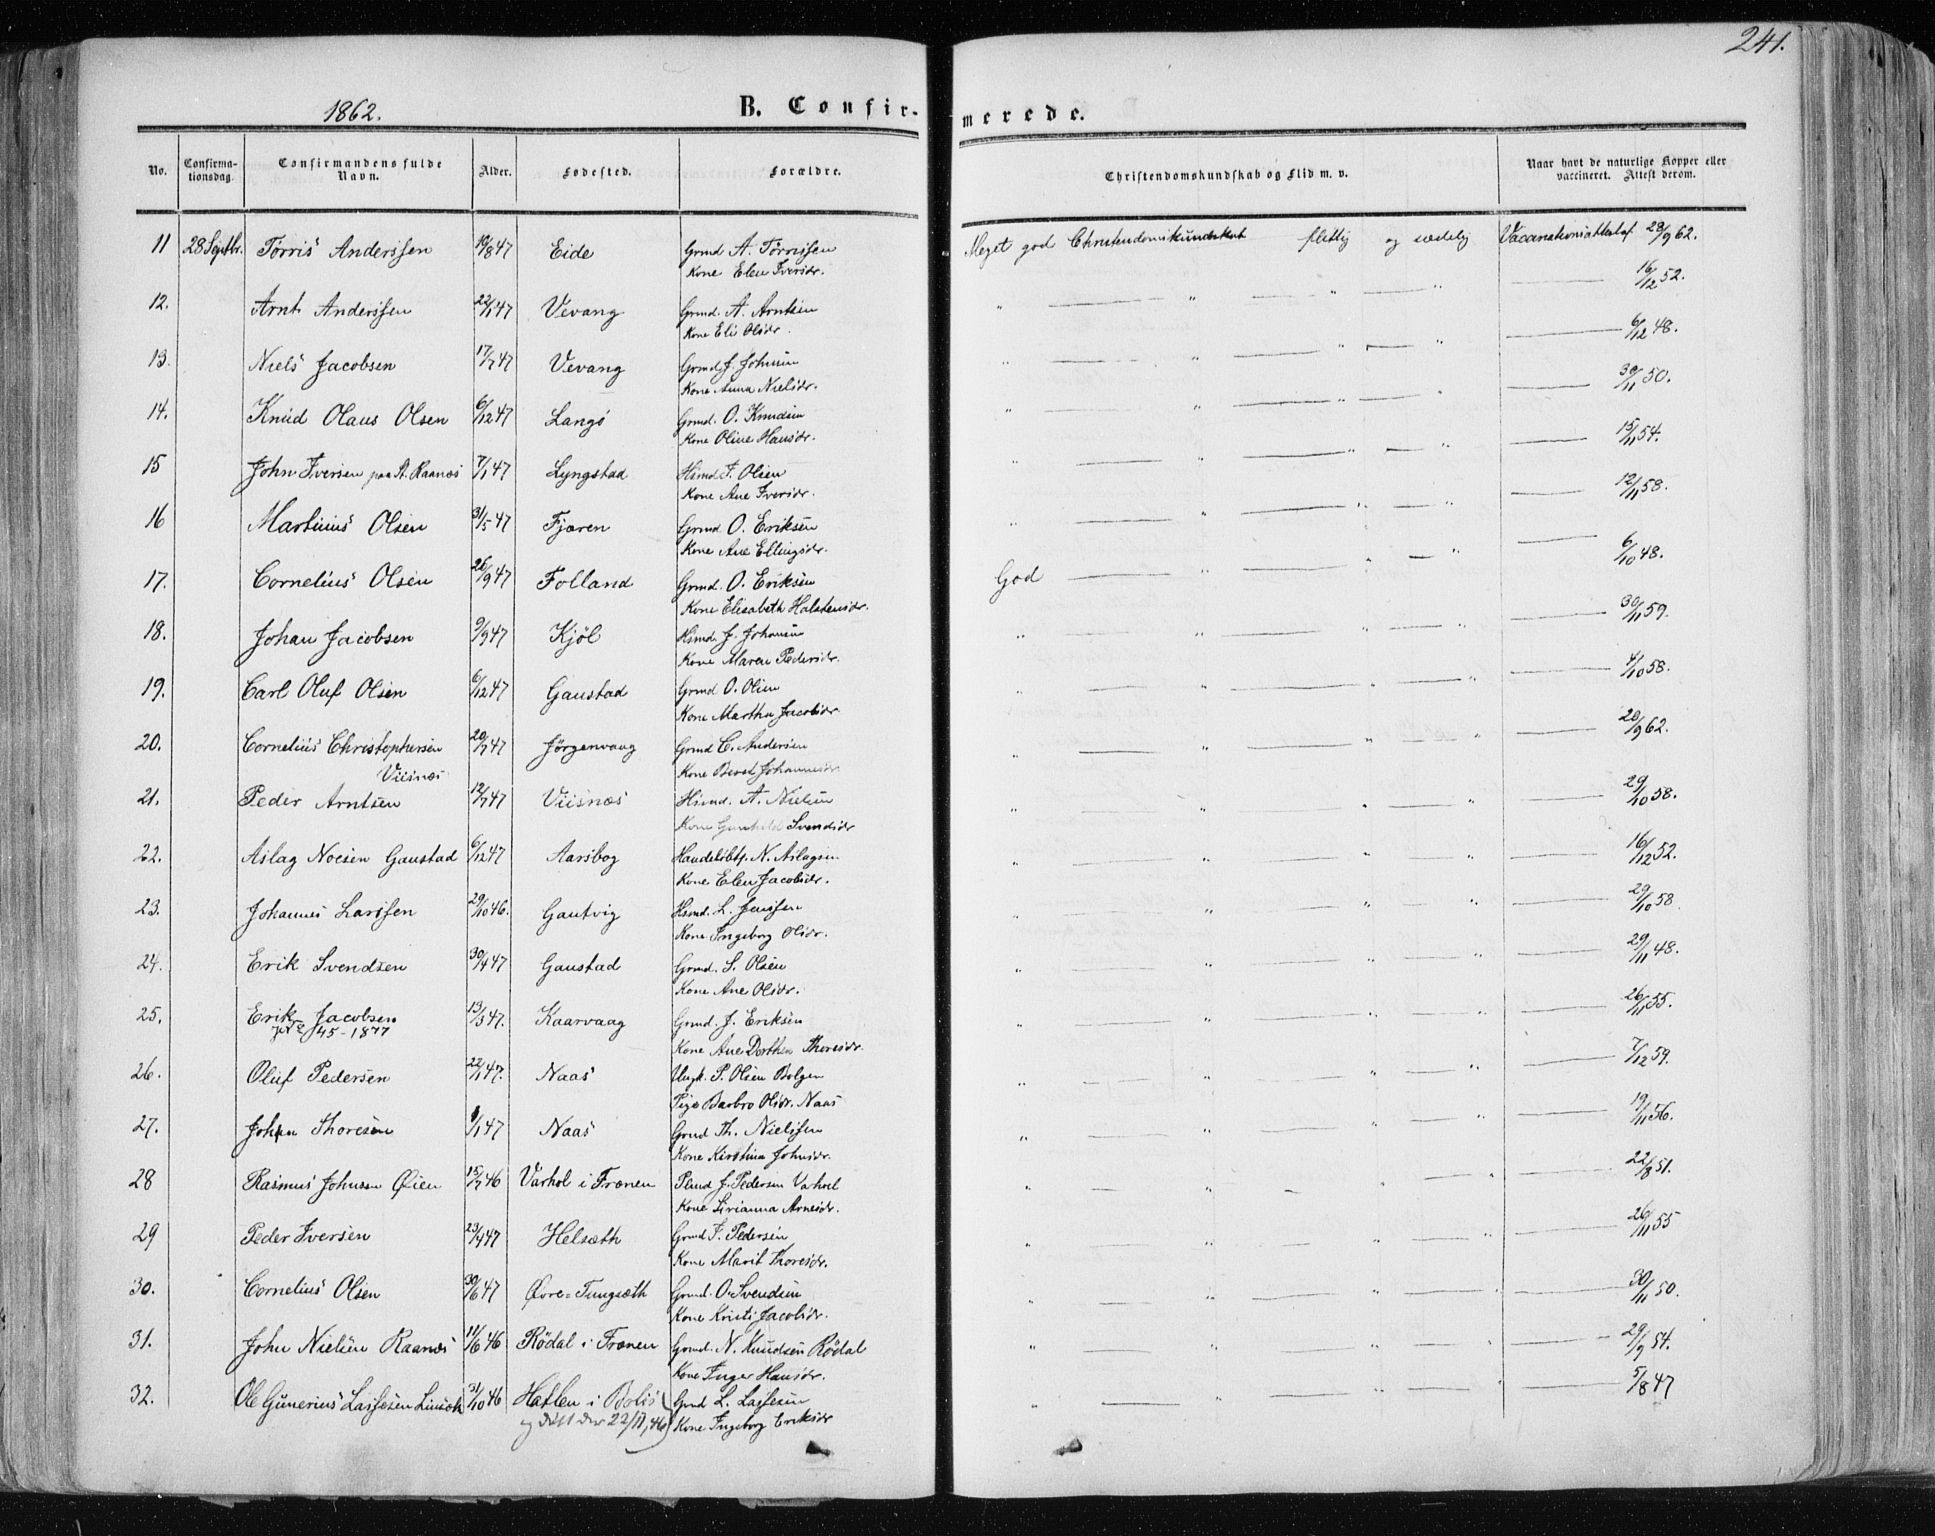 241.
1862.
B. Confirmerede.
No. Confirmationsdag. Confirmandens fulde Navn. Alder. Fødested. Forældre. Christendomskundskab og Flid m. v. Naar havt de naturlige Kopper eller vaccineret. Attest derom.
11 28 Septbr. Tørris Anderssen 19/8 47 Eide Grmd A. Tørrissen Meget god Christendomskundskab flittig og sædelig Vaccinationsattest af 28/9 62.
Kone Elen Iversdr.
12. Arnt Anderssen 22/1 47 Vevang Grmd. A. Arntsen " — " — " — " — 16/12 52.
Kone Eli Olsdr.
13. Niels Jacobsen 17/7 47 Vevang Grmd J. Johnsen " — " — " — " — 6/12 48.
Kone Anna Nielsdr.
14. Knud Olaus Olsen 6/12 47 Langö Grmd. O. Knudsen " — " — " — " — 30/11 50.
Kone Oline Hansdr.
15 John Iversen paa St. Raanæs 7/1 47 Lyngstad Hsmd I. Olsen " — " — " — " — 15/11 54.
Kone Ane Iversdr.
16 Martinus Olsen 31/5 47 Fjæren Grmd O. Eriksen " — " — " — " — 12/11 58.
Kone Ane Ellingsdr.
17. Cornelius Olsen 26/9 47 Folland Grmd. O. Eriksen God — " — " — " — 6/10 48.
Kone Elisabeth Halstensdr.
18. Johan Jacobsen 9/9 47 Kjöl Hsmd. J. Johansen " — " — " — " — 30/11 59.
Kone Maren Pedersdr.
19. Carl Oluf Olsen 6/12 47 Gaustad Grmd O. Olsen " — " — " — " — 4/10 58.
Kone Martha Jacobsdr
20. Cornelius Christophersen 20/7 47 Jörgenvaag Grmd C. Andersen " — " — " — " — 20/9 62.
Viisnæs Kone Beret Johannesdr
21. Peder Arntsen 12/7 47 Viisnæs Hsmd. A. Nielsen " — " — " — " — 29/10 58.
Kone Gunhild Svendsdr
22. Aslag Noesen Gaustad 6/12 47 Aarsbog Handelsbtj. N. Aslagsen " — " — " — " — 16/12 52.
Kone Elen Jacobsdr.
23. Johannes Larssen 29/10 46. Gautvig Hsmd. L. Jenssen " — " — " — " — 29/10 58
Kone Ingeborg Olsdr.
24. Erik Svendsen 30/4 47 Gaustad Grmd. S. Olsen " — " — " — " — 29/11 48.
Kone Ane Olsdr.
25. Erik Jacobsen 13/3 47. Kaarvaag Grmd. J. Eriksen " — " — " — " — 26/11 55.
45-1877 Kone Ane Dorthea Thoresdr.
26. Oluf Pedersen 22/1 47. Naas Ungk. P. Olsen Bolgen " — " — " — " — 7/12 59.
Pige Barbro Olsdr. Naas
27. Johan Thoresen 1/1 47 Naas Grmd Th. Nielssen " — " — " — " — 19/11 56.
Kone Kirstina Johnsdr.
28 Rasmus Johnsen Öien 15/7 46 Varhol i Frænen Plmd J. Pedersen Varhol " — " — " — " — 22/8 51.
Kone Sirianna Arnesdr.
29 Peder Iversen 23/4 47 Helsæth Grmd I. Pedersen " — " — " — " — 26/11 55
Kone Marit Thoresdr.
30. Cornelius Olsen 30/6 47 Övre-Tungsæth Grmd. O. Svendsen " — " — " — " — 30/11 50.
Kone Kristi Jacobsdr.
31. John Nielsen Raanæs 11/6 46 Rödal i Frænen Grmd. N. Knudsen Rödal " — " — " — " — 29/9 54.
Kone Inger Hansdr.
32. Ole Gunerius Lassesen 31/10 46 Hatlen i Bolsö Grmd L. Lassesen " — " — " — " — 5/8 47
og döbt der 22/11, 46) Kone Ingeborg Eriksdr